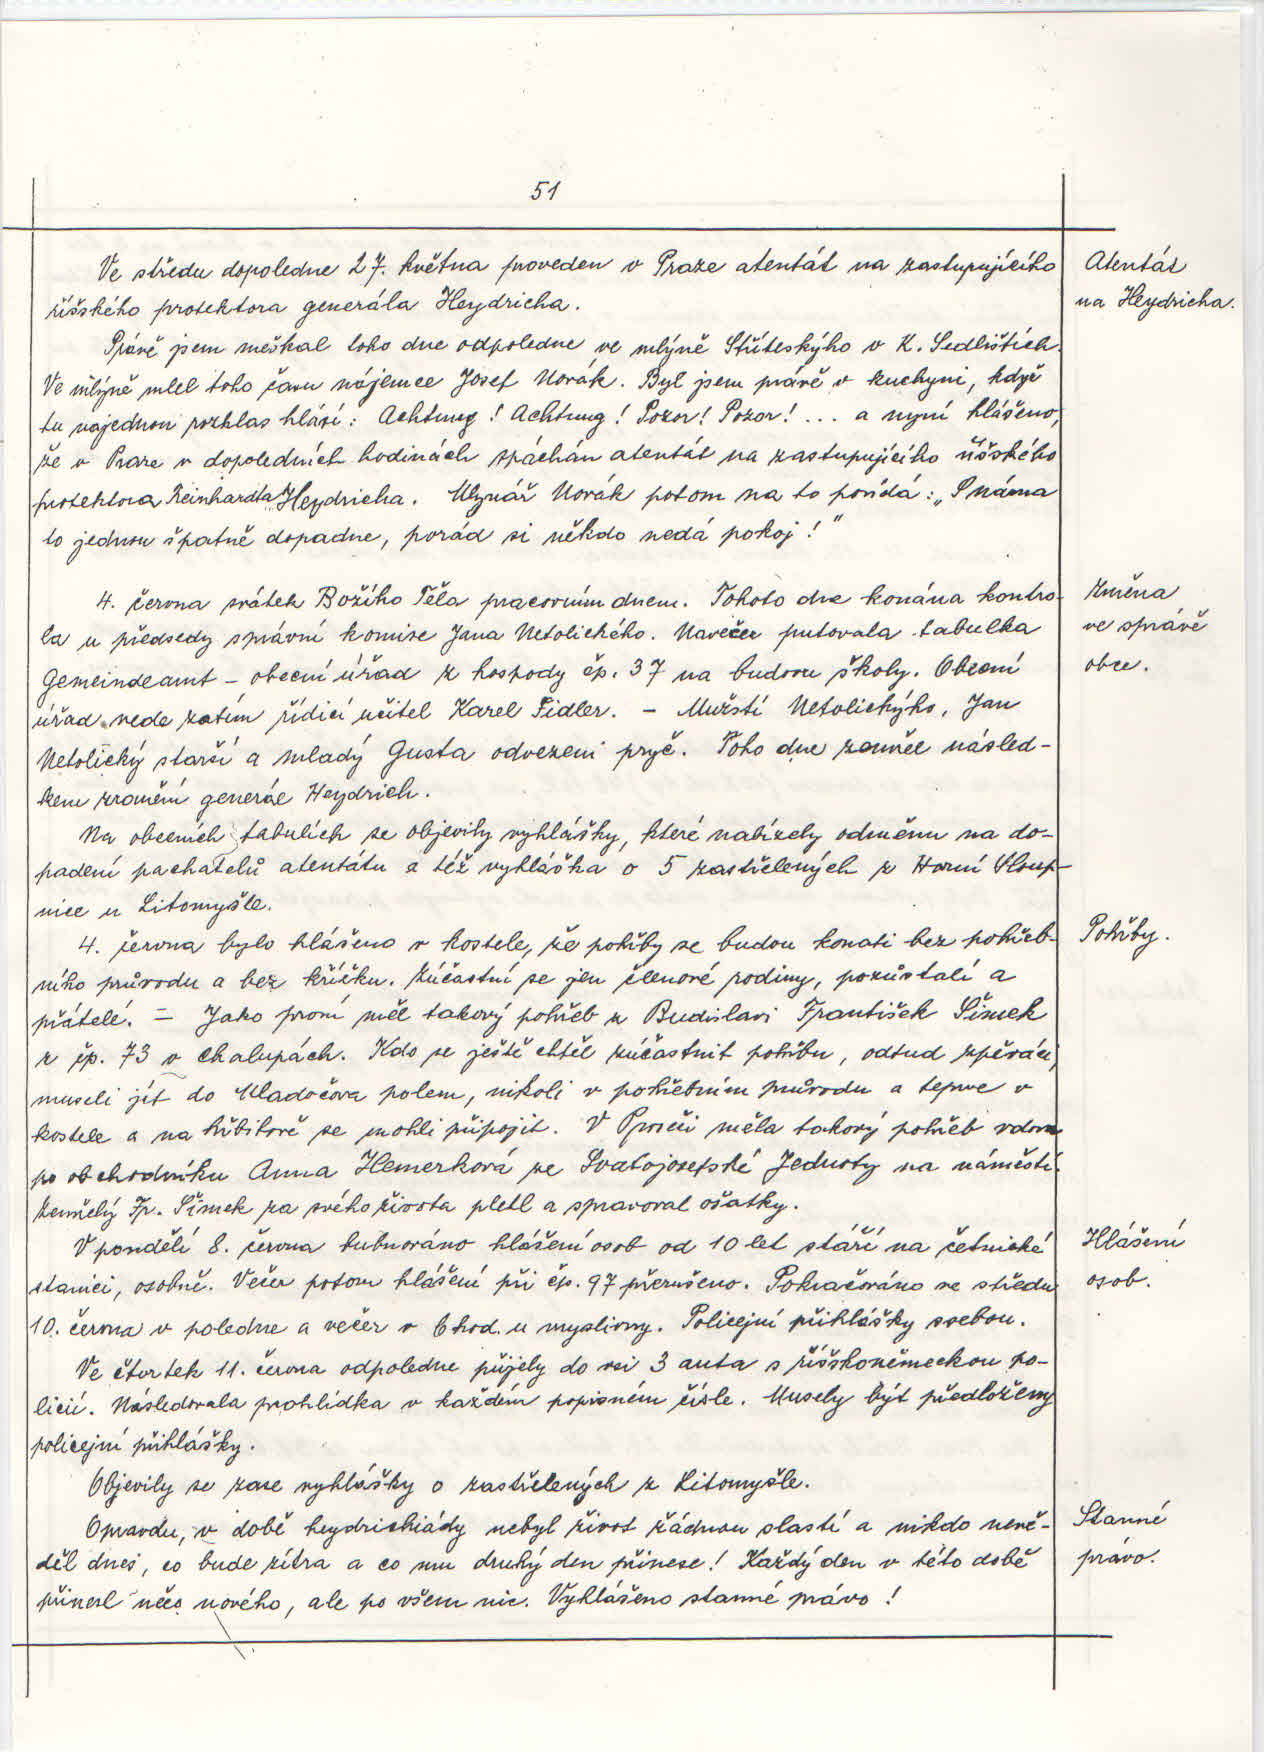 51
Ve středu dopoledne 27. května proveden v Praze atentát na zastupujícího
říšského protektora generála Heydricha.
Atentát
na Heydricha.
Právě jsem meškal toho dne odpoledne ve mlýně Stříteského v K. Sedlištích.
Ve mlýně mlel toho času nájemce Josef Novák. Byl jsem právě v kuchyni, když
tu najednou rozhlas hlásí: Achtung! Achtung! Pozor! Pozor! ... a nyní hlášeno,
že v Praze v dopoledních hodinách spáchán atentát na zastupujícího říšského
protektora Reinhardta Heydricha. Mlynář Novák potom na to povídá: „S náma
to jednou špatně dopadne, pořád si někdo nedá pokoj!"
4. června svátek Božího Těla pracovním dnem. Tohoto dne konána kontro-
la u předsedy správní komise Jana Netolického. Navečer putovala tabulka
Gemeindeamt – obecní úřad z hospody čp. 37 na budovu školy. Obecní
úřad vede zatím řídící učitel Karel Fidler. – Mužští Netolickýho, Jan
Netolický starší a mladý Gusta odvezeni pryč. Toho dne zemřel násled-
kem zranění generál Heydrich.
Změna
ve správě
obce.
Na obecních tabulích se objevily vyhlášky, které nabízely odměnu na do-
padení pachatelů atentátu a též vyhláška o 5 zastřelených z Horní Sloup-
nice u Litomyšle.
4. června bylo hlášeno v kostele, že pohřby se budou konati bez pohřeb-
ního průvodu a bez křížku. Zúčastní se jen členové rodiny, pozůstalí a
přátelé. – Jako první měl takový pohřeb z Budislavi František Šimek
z čp. 73 v Chalupách. Kdo se ještě chtěl zúčastnit pohřbu, odtud zpěváci,
museli jít do Mladočova polem, nikoli v pohřebním průvodu a teprve v
kostele a na hřbitově se mohli připojit. V Proseči měla takový pohřeb vdova
po obchodníku Anna Hemerková ze Svatojosefské Jednoty na náměstí.
Zemřelý Fr. Šimek za svého života pletl a spravoval ošatky.
Pohřby.
V pondělí 8. června bubnováno hlášení osob od 10 let stáří na četnické
stanici, osobně. Večer potom hlášení při čp. 97 přerušeno. Pokračováno ve středu
10. června v poledne a večer v 6 hod. u myslivny. Policejní přihlášky sebou.
Hlášení
osob.
Ve čtvrtek 11. června odpoledne přijely do vsi 3 auta s říšskoněmeckou po-
licií. Následovala prohlídka v každém popisném čísle. Musely být předloženy
policejní přihlášky.
Objevily se zase vyhlášky o zastřelených z Litomyšle.
Opravdu, v době heydrichiády nebyl život žádnou slastí a nikdo nevě-
děl dnes, co bude zítra a co mu druhý den přinese! Každý den v této době
přinesl něco nového, ale po všem nic. Vyhlášeno stanné právo!
Stanné
právo.